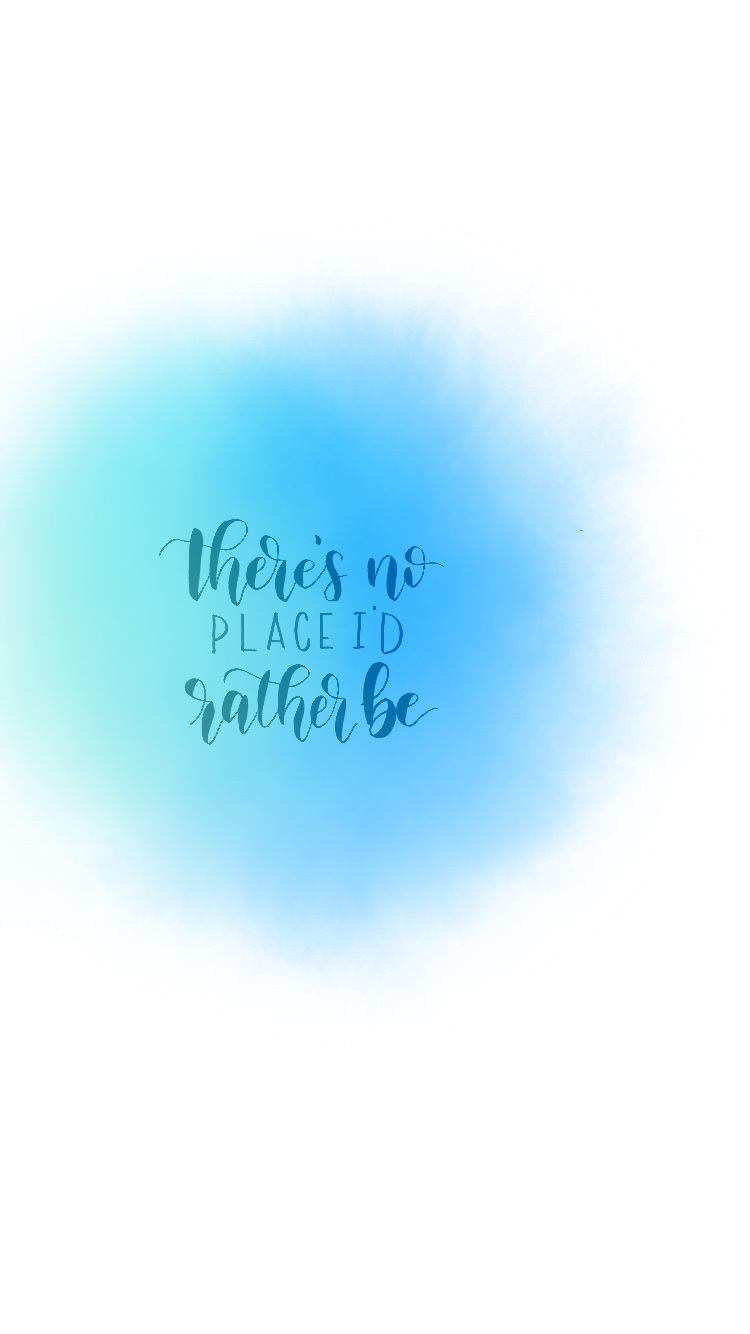 there's no
PLACE I'D
rather be